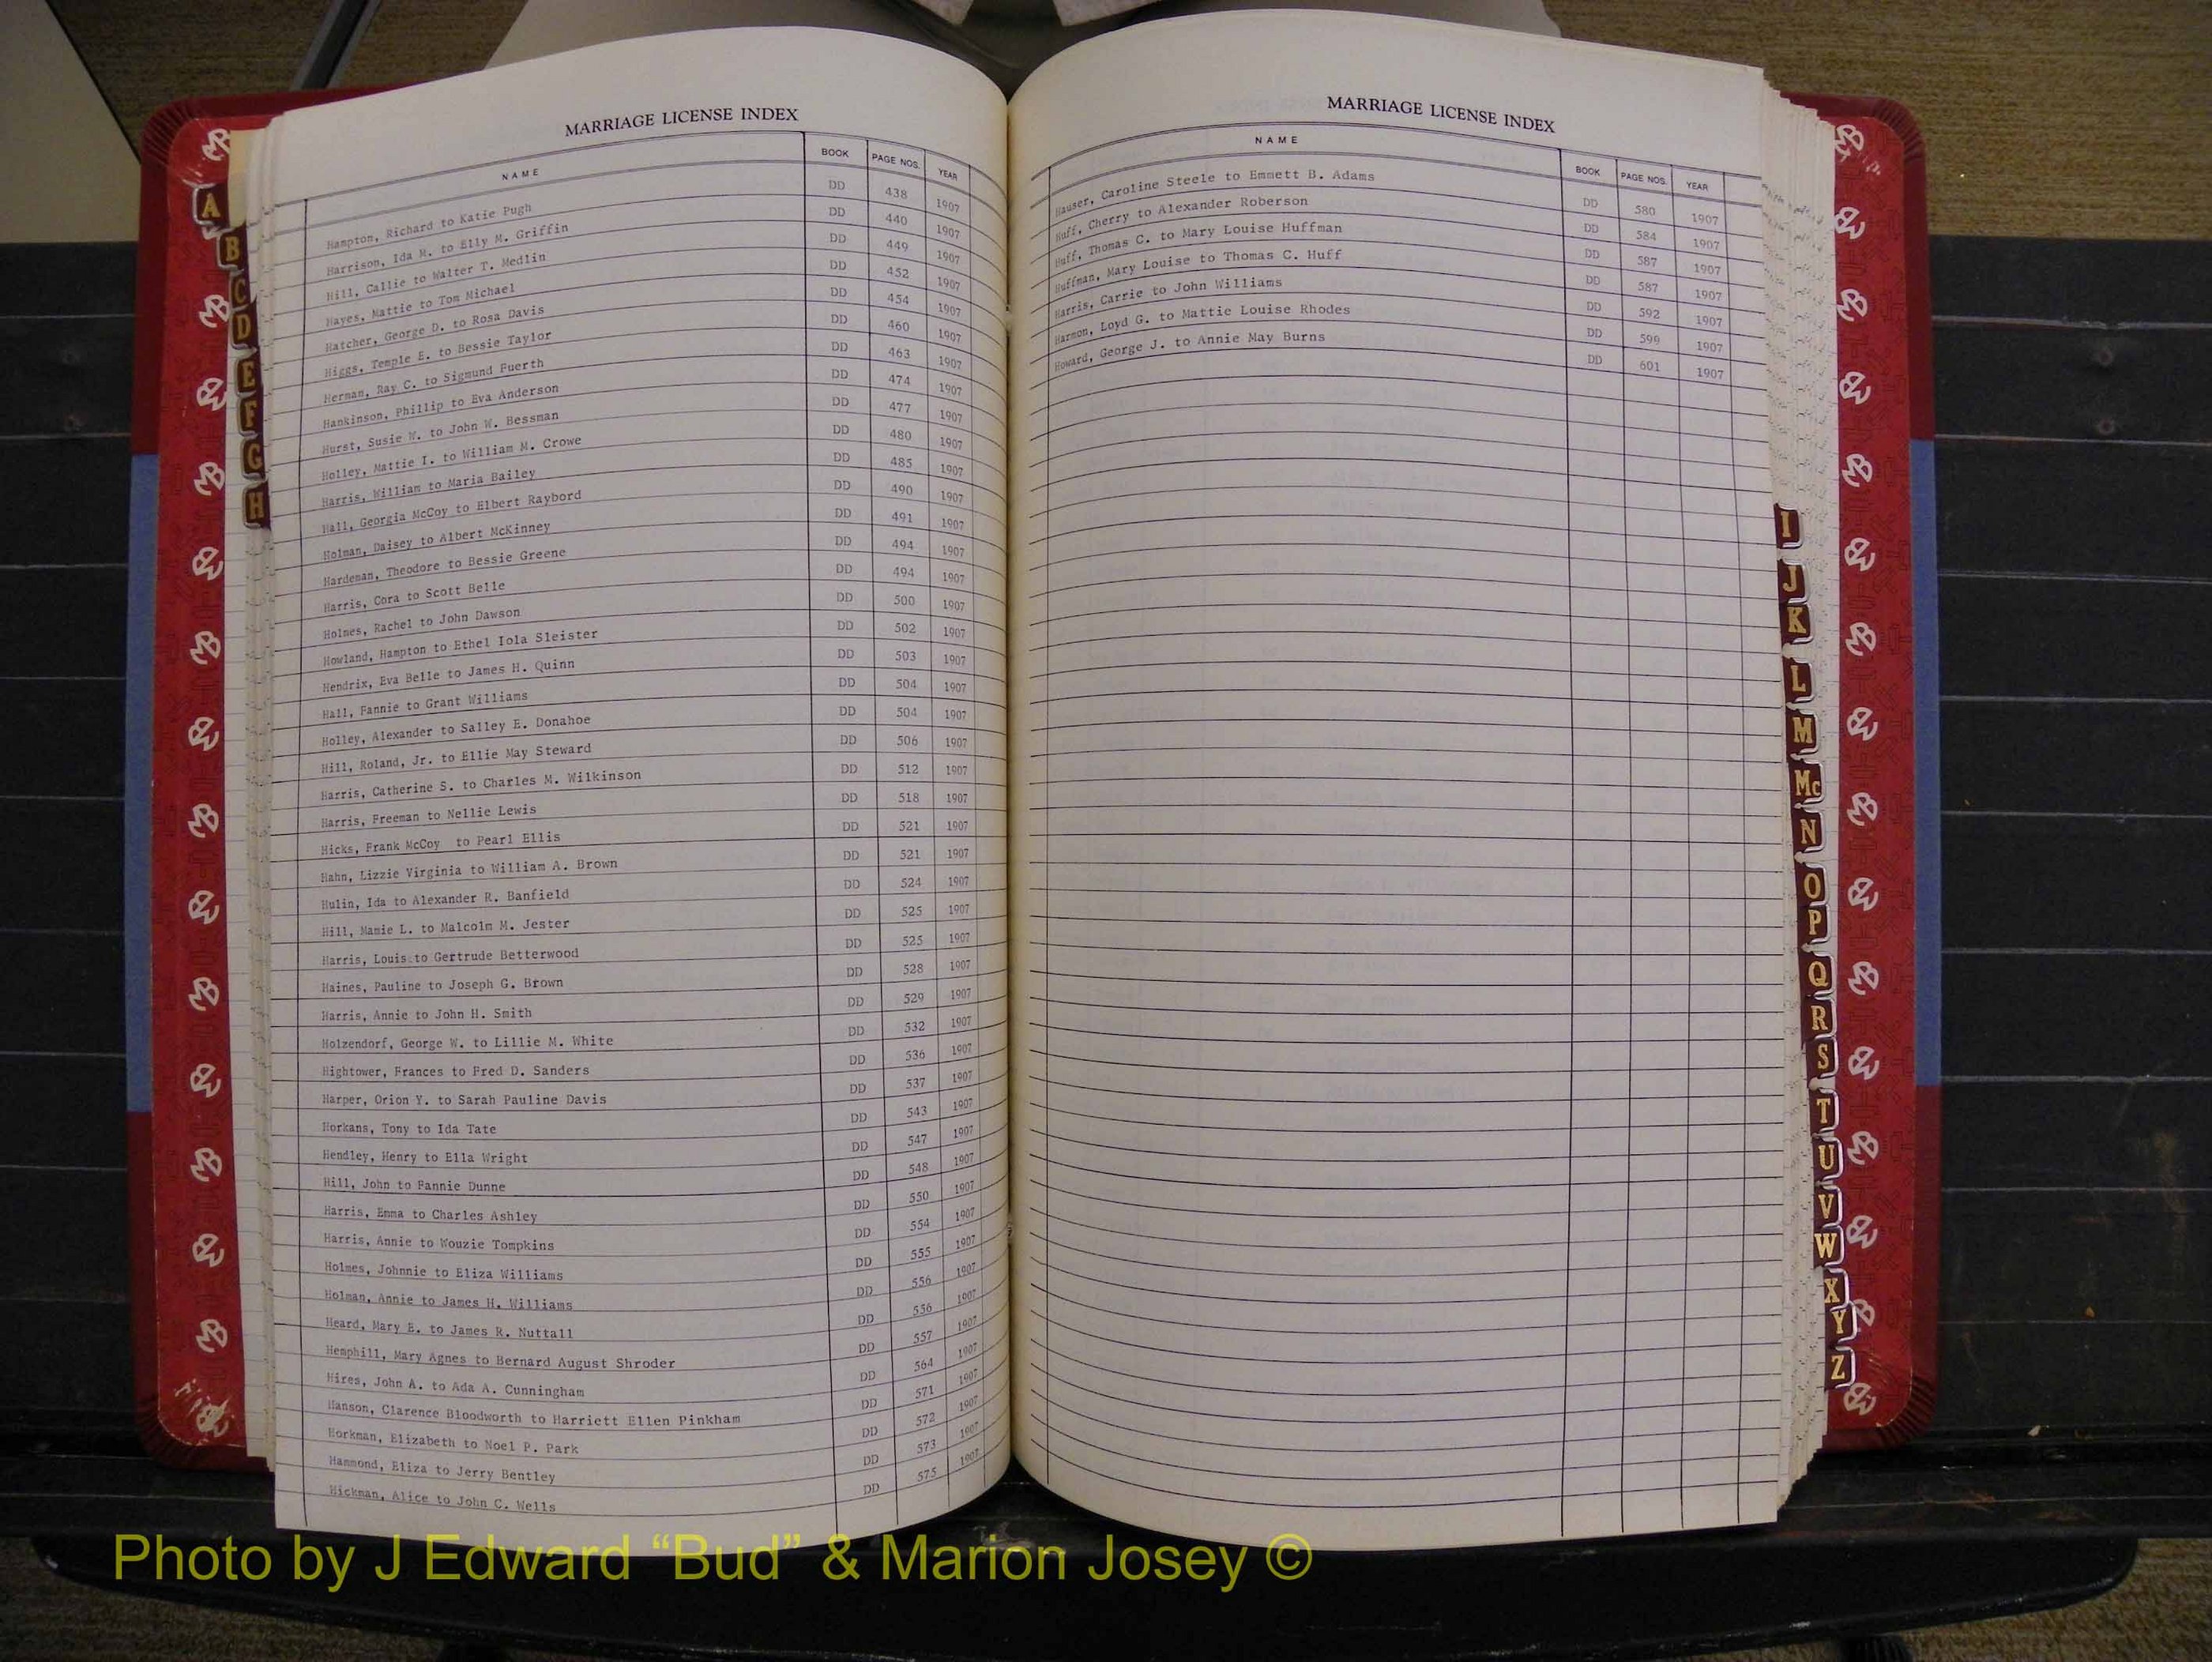 MARRIAGE LICENSE INDEX
NAME BOOK PAGE NOS. YEAR
Hampton, Richard to Katie Pugh DD 438 1907
Harrison, Ida M. to Elly M. Griffin DD 440 1907
Hill, Callie to Walter T. Medlin DD 449 1907
Hayes, Mattie to Tom Michael DD 452 1907
Hatcher, George D. to Rosa Davis DD 454 1907
Higgs, Temple E. to Bessie Taylor DD 460 1907
Herman, Ray C. to Sigmund Fuerth DD 463 1907
Hankinson, Phillip to Eva Anderson DD 474 1907
Hurst, Susie W. to John W. Bessman DD 477 1907
Holley, Mattie I. to William M. Crowe DD 480 1907
Harris, William to Maria Bailey DD 485 1907
Hall, Georgia McCoy to Elbert Raybord DD 490 1907
Holman, Daisey to Albert McKinney DD 491 1907
Hardeman, Theodore to Bessie Greene DD 494 1907
Harris, Cora to Scott Belle DD 494 1907
Holmes, Rachel to John Dawson DD 500 1907
Howland, Hampton to Ethel Iola Sleister DD 502 1907
Hendrix, Eva Belle to James H. Quinn DD 503 1907
Hall, Fannie to Grant Williams DD 504 1907
Holley, Alexander to Salley E. Donahoe DD 504 1907
Hill, Roland, Jr. to Ellie May Steward DD 506 1907
Harris, Catherine S. to Charles M. Wilkinson DD 512 1907
Harris, Freeman to Nellie Lewis DD 518 1907
Hicks, Frank McCoy to Pearl Ellis DD 521 1907
Hahn, Lizzie Virginia to William A. Brown DD 521 1907
Hulin, Ida to Alexander R. Banfield DD 524 1907
Hill, Mamie L. to Malcolm M. Jester DD 525 1907
Harris, Louis to Gertrude Betterwood DD 525 1907
Haines, Pauline to Joseph G. Brown DD 528 1907
Harris, Annie to John H. Smith DD 529 1907
Holzendorf, George W. to Lillie M. White DD 532 1907
Hightower, Frances to Fred D. Sanders DD 536 1907
Harper, Orion Y. to Sarah Pauline Davis DD 537 1907
Horkans, Tony to Ida Tate DD 543 1907
Hendley, Henry to Ella Wright DD 547 1907
Hill, John to Fannie Dunne DD 548 1907
Harris, Emma to Charles Ashley DD 550 1907
Harris, Annie to Wouzie Tompkins DD 554 1907
Holmes, Johnnie to Eliza Williams DD 555 1907
Holman, Annie to James H. Williams DD 556 1907
Heard, Mary E. to James R. Nuttall DD 556 1907
Hemphill, Mary Agnes to Bernard August Shroder DD 557 1907
Hires, John A. to Ada A. Cunningham DD 564 1907
Hanson, Clarence Bloodworth to Harriett Ellen Pinkham DD 571 1907
Horkman, Elizabeth to Noel P. Park DD 572 1907
Hammond, Eliza to Jerry Bentley DD 573 1907
Hickman, Alice to John C. Wells DD 575 1907
MARRIAGE LICENSE INDEX
NAME BOOK PAGE NOS. YEAR
Hauser, Caroline Steele to Emmett B. Adams DD 580 1907
Huff, Cherry to Alexander Roberson DD 584 1907
Huff, Thomas C. to Mary Louise Huffman DD 587 1907
Huffman, Mary Louise to Thomas C. Huff DD 587 1907
Harris, Carrie to John Williams DD 592 1907
Harmon, Loyd G. to Mattie Louise Rhodes DD 599 1907
Howard, George J. to Annie May Burns DD 601 1907
A
B
C
D
E
F
G
H
I
J
K
L
M
Mc
N
O
P
Q
R
S
T
U
V
W
X
Y
Z
Photo by J Edward “Bud” & Marion Josey ©